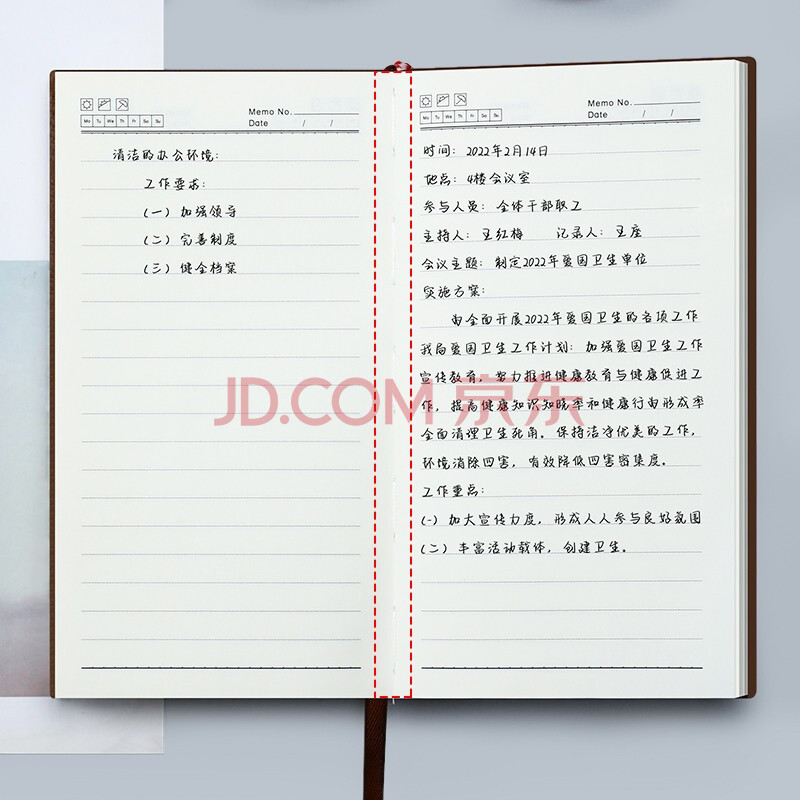 Mo Tu We Th Fr Sa Su
Memo No.
Date / /
清洁的办公环境:
工作要求:
(一) 加强领导
(二) 完善制度
(三) 健全档案
Mo Tu We Th Fr Sa Su
Memo No.
Date / /
时间: 2022年2月14日
地点: 4楼会议室
参与人员: 全体干部职工
主持人: 王红梅 记录人: 王座
会议主题: 制定2022年爱国卫生单位
实施方案:
由全面开展2022年爱国卫生的各项工作
我局爱国卫生工作计划: 加强爱国卫生工作
宣传教育, 努力推进健康教育与健康促进工
作, 提高健康知识知晓率和健康行由形成率
全面清理卫生死角。保持洁净优美的工作,
环境消除四害, 有效降低四害密集度。
工作重点:
(一) 加大宣传力度, 形成人人参与良好氛围
(二) 丰富活动载体, 创建卫生。
JD.COM 京东